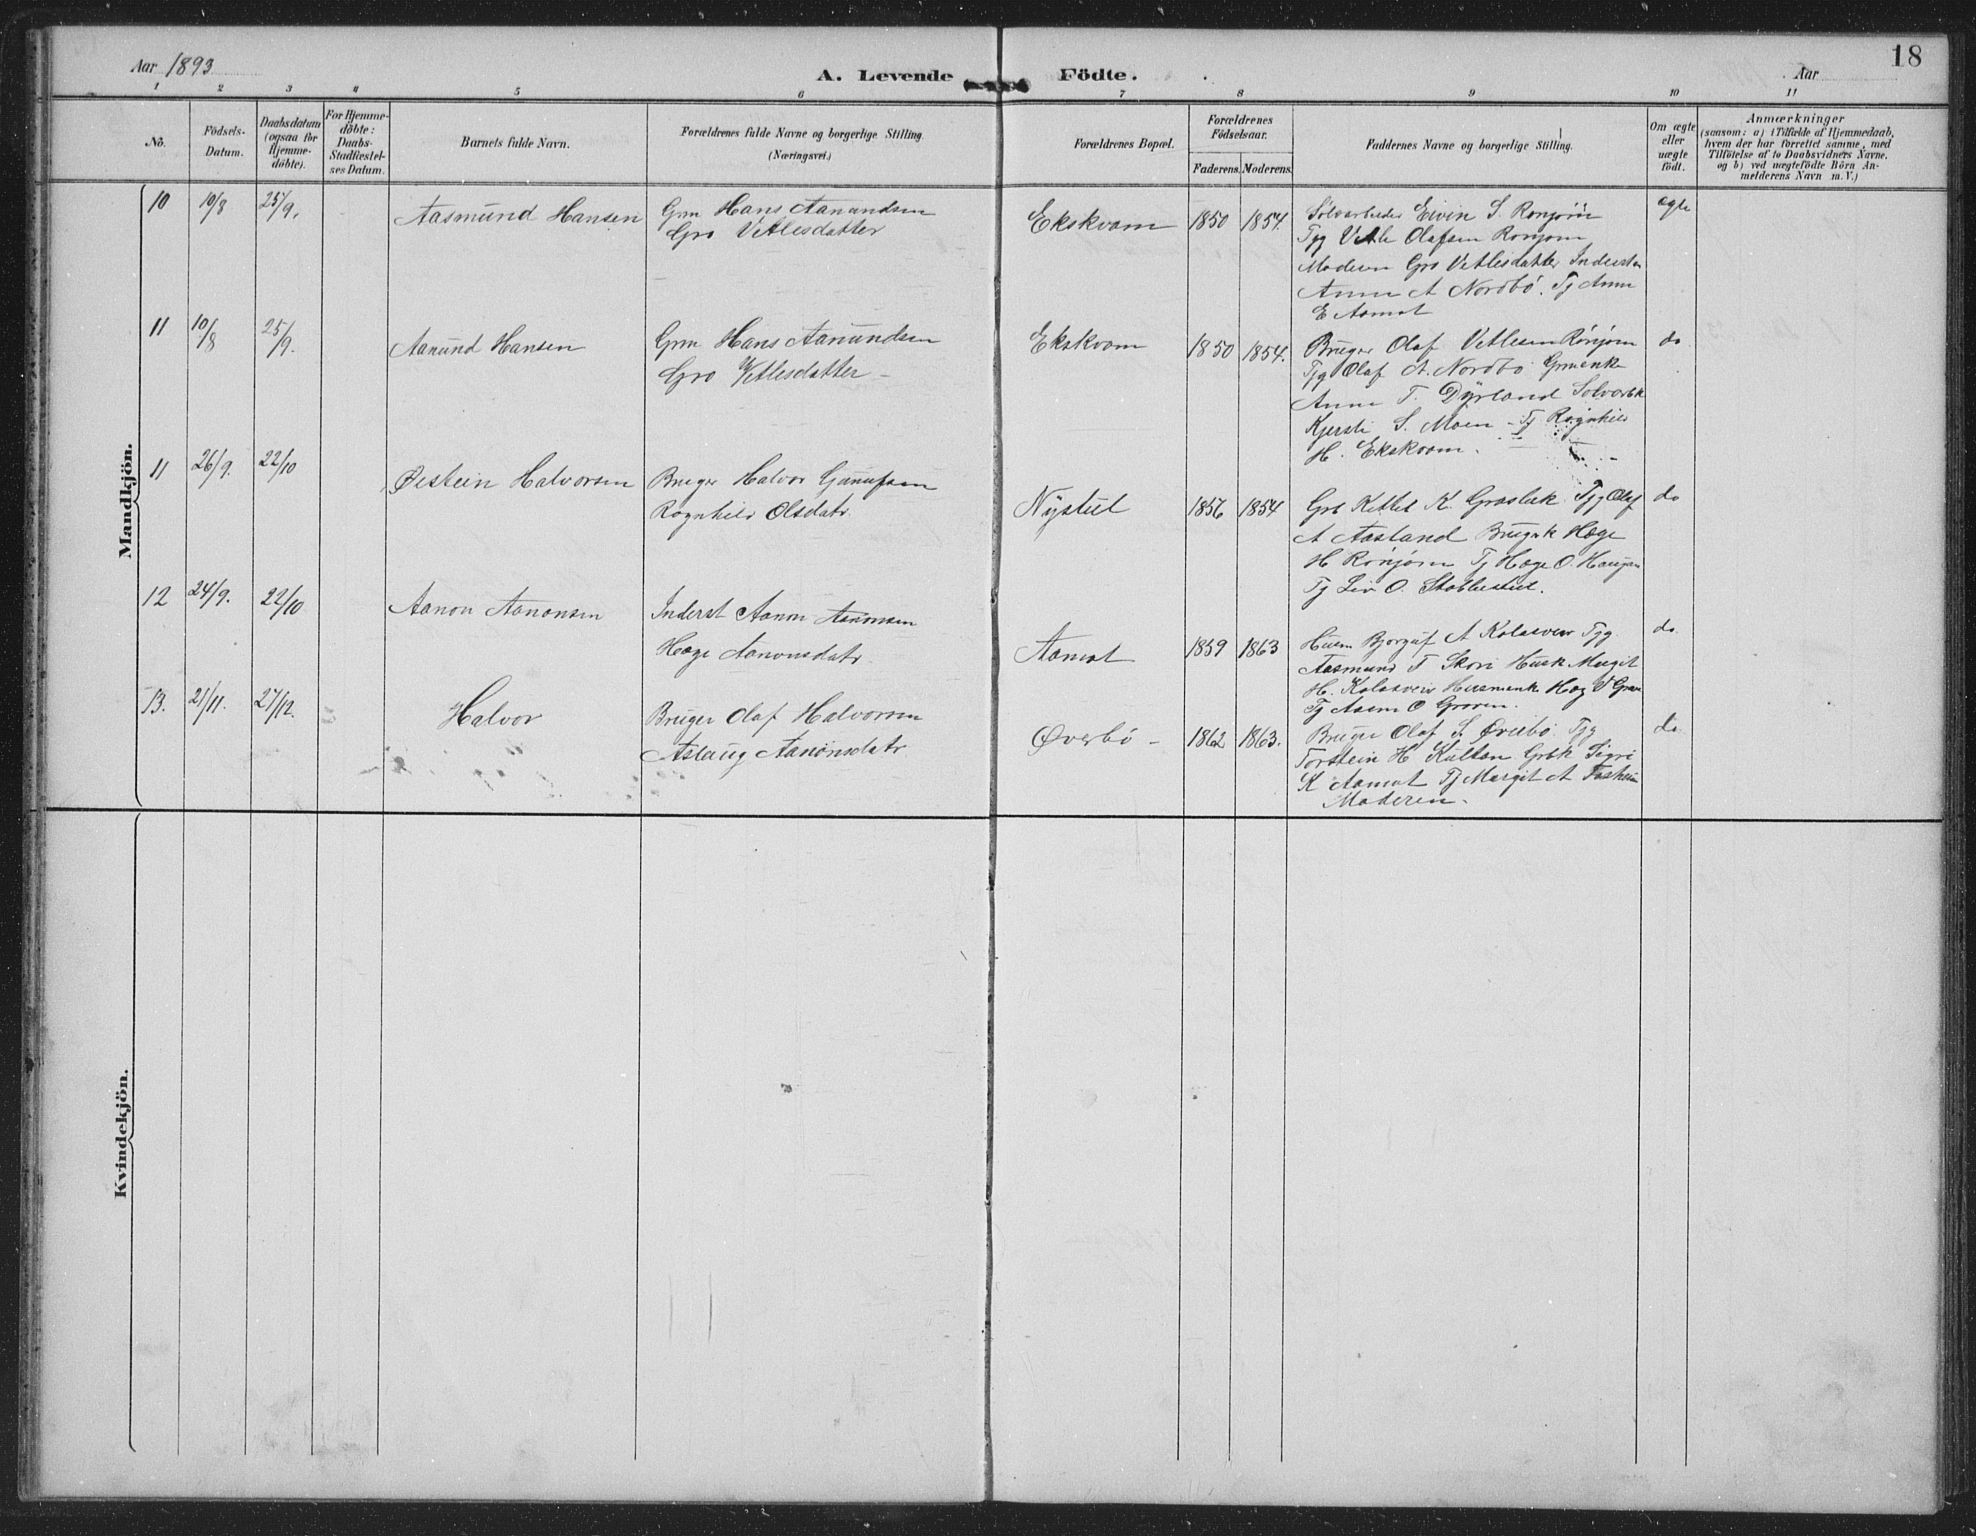 18
Aar 1893
A. Levende Födte.
Aar
1 2 3 4 5 6 7 8 9 10 11
No.
Födsels-
Datum.
Daabsdatum
(ogsaa for
Hjemme-
döbte).
For Hjemme-
döbte:
Daabs-
Stadfæstel-
ses Datum.
Barnets fulde Navn.
Forældrenes fulde Navne og borgerlige Stilling.
(Næringsvei.)
Forældrenes Bopæl.
Forældrenes
Födselsaar.
Faderens. Moderens.
Faddernes Navne og borgerlige Stilling.
Om ægte
eller
uægte
födt.
Anmærkninger
(saasom: a) i Tilfælde af Hjemmedaab,
hvem der har forrettet samme, med
Tilföielse af to Daabsvidners Navne,
og b) ved uægtefödte Börn An-
melderens Navn m. V.)
Mandkjön.
10 10/8 25/9. Aasmund Hansen
Grm Hans Aanundsen
Gro Vetlesdatter
Ekskvam 1850 1854.
Sølvarbeider Eivin S. Ronjom
Tjg Vetle Olafsen Ronjom
Moderen Gro Vetlesdatter Inderst
Anne A Nordbø. Tj Anne
E Aamot
ægte
11 10/8 25/9. Aanund Hansen
Grm Hans Aanundsen
Gro Vetlesdatter –
Ekskvam 1850 1854.
Bruger Olaf Vetlesen Rønjom
Tjg Olaf A. Nordbø Grmenke
Anne T. Dyrland Solvarbk
Kjersti S. Moen – Tj Ragnhild
H. Ekskvam.
do
11 26/9. 22/10 Øistein Halvorsen
Bruger Halvor Gunufsen
Ragnhild Olsdatr.
Nystul 1856 1854
Grb Kittel K. Tjg Olaf
A Aasland Brugrk Hæge
H Rønjom Tj Hæge O.
Tj Liv O. Stabbestul.
do
12 24/9. 22/10 Aanon Aanonsen
Inderst Aanon Aanonsen
Hæge Aanonsdatr.
Aamot 1859 1863
Husm Bjorguf A Kolasvein Tjg
Aasmund T Skori Husk Margit
H. Kolasvein Husmenk Hæg V Grave
Tj Aasne O Graven.
do
13. 21/11. 27/12. Halvor
Bruger Olaf Halvorsen
Aslaug Aanonsdatr
Øverbø – 1862 1863.
Bruger Olaf S. Øverbø. Tjg
Torstein H Kultan Grbk Sigri
K Aamot Tj Margit A
Moderen.
do
Kvindekjön.